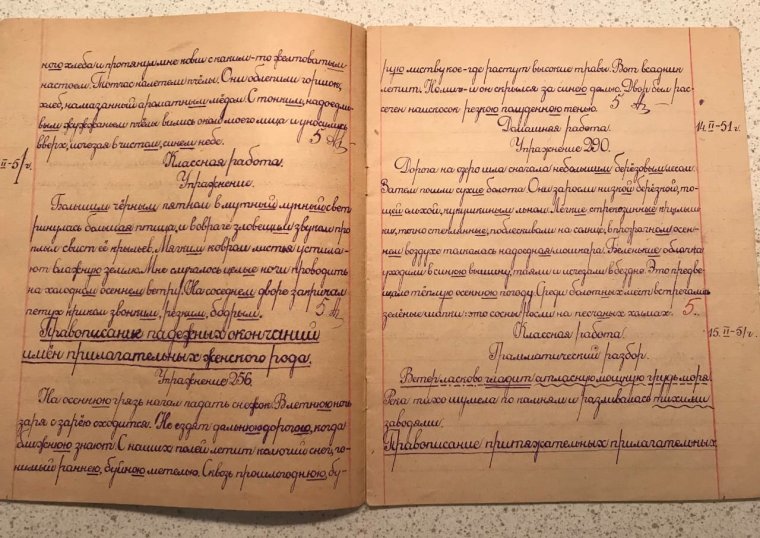 ного хлеба и протянул мне ковш с каким-то желтоватым
настоем. Тотчас налетели пчёлы. Они облепили горшок,
хлеб, намазанный ароматным мёдом. С тонким, надоедли-
вым жужжаньем пчёлы вились около моего лица и уносились
вверх, исчезая в чистом, синем небе. 5
Классная работа.
II-51г.
Упражнение.
Большим чёрным пятном в мутный лунный свет
ринулась большая птица, и в овраге зловещим звуком про-
плыл свист её крыльев. Мягким ковром листья устила-
ют влажную землю. Мне случалось целые ночи проводить
на холодном осеннем ветру. На соседнем дворе закричал
петух криком звонким, резким, бодрым. 5
Правописание падежных окончаний
имён прилагательных женского рода.
Упражнение 256.
На осеннюю грязь начал падать снежок. В летнюю ночь
заря с зарёю сходится. Не ездят дальнюю дорогою, когда
ближнюю знают. С наших полей летит колючий снег, го-
нимый раннею, буйною метелью. Сквозь прошлогоднюю, бу-
рую листву кое-где растут высокие травы. Вот всадник
летит. Помиг и он скрылся за синею далью. Двор был рас-
сечен наискосок резкою полуденною тенью. 5
Домашняя работа.
14.II-51г.
Упражнение 290.
Дорога на озеро шла сначала небольшим берёзовым лесом.
Затем пошли сухие болота. Они заросли низкой берёзкой, то-
щей ольхой, кукушкиным льном. Лёгкие стрекозиные крылыш-
ки, точно стеклянные, поблёскивали на солнце, в прозрачном осен-
нем воздухе толклась надоедная мошкара. Беленькие облачка
уходили в синюю вышину, таяли и исчезали в бездне. Это предве-
щало тёплую осеннюю погоду. Среди болотных мест встречались
зелёные шапки: это сосны росли на песчаных холмах. 5.
Классная работа.
15.II-51г.
Грамматический разбор.
Ветер ласково гладит атласную мощную грудь моря.
Река тихо шумела по камням и разливалась тихими
заводями.
Правописание притяжательных прилагательных.